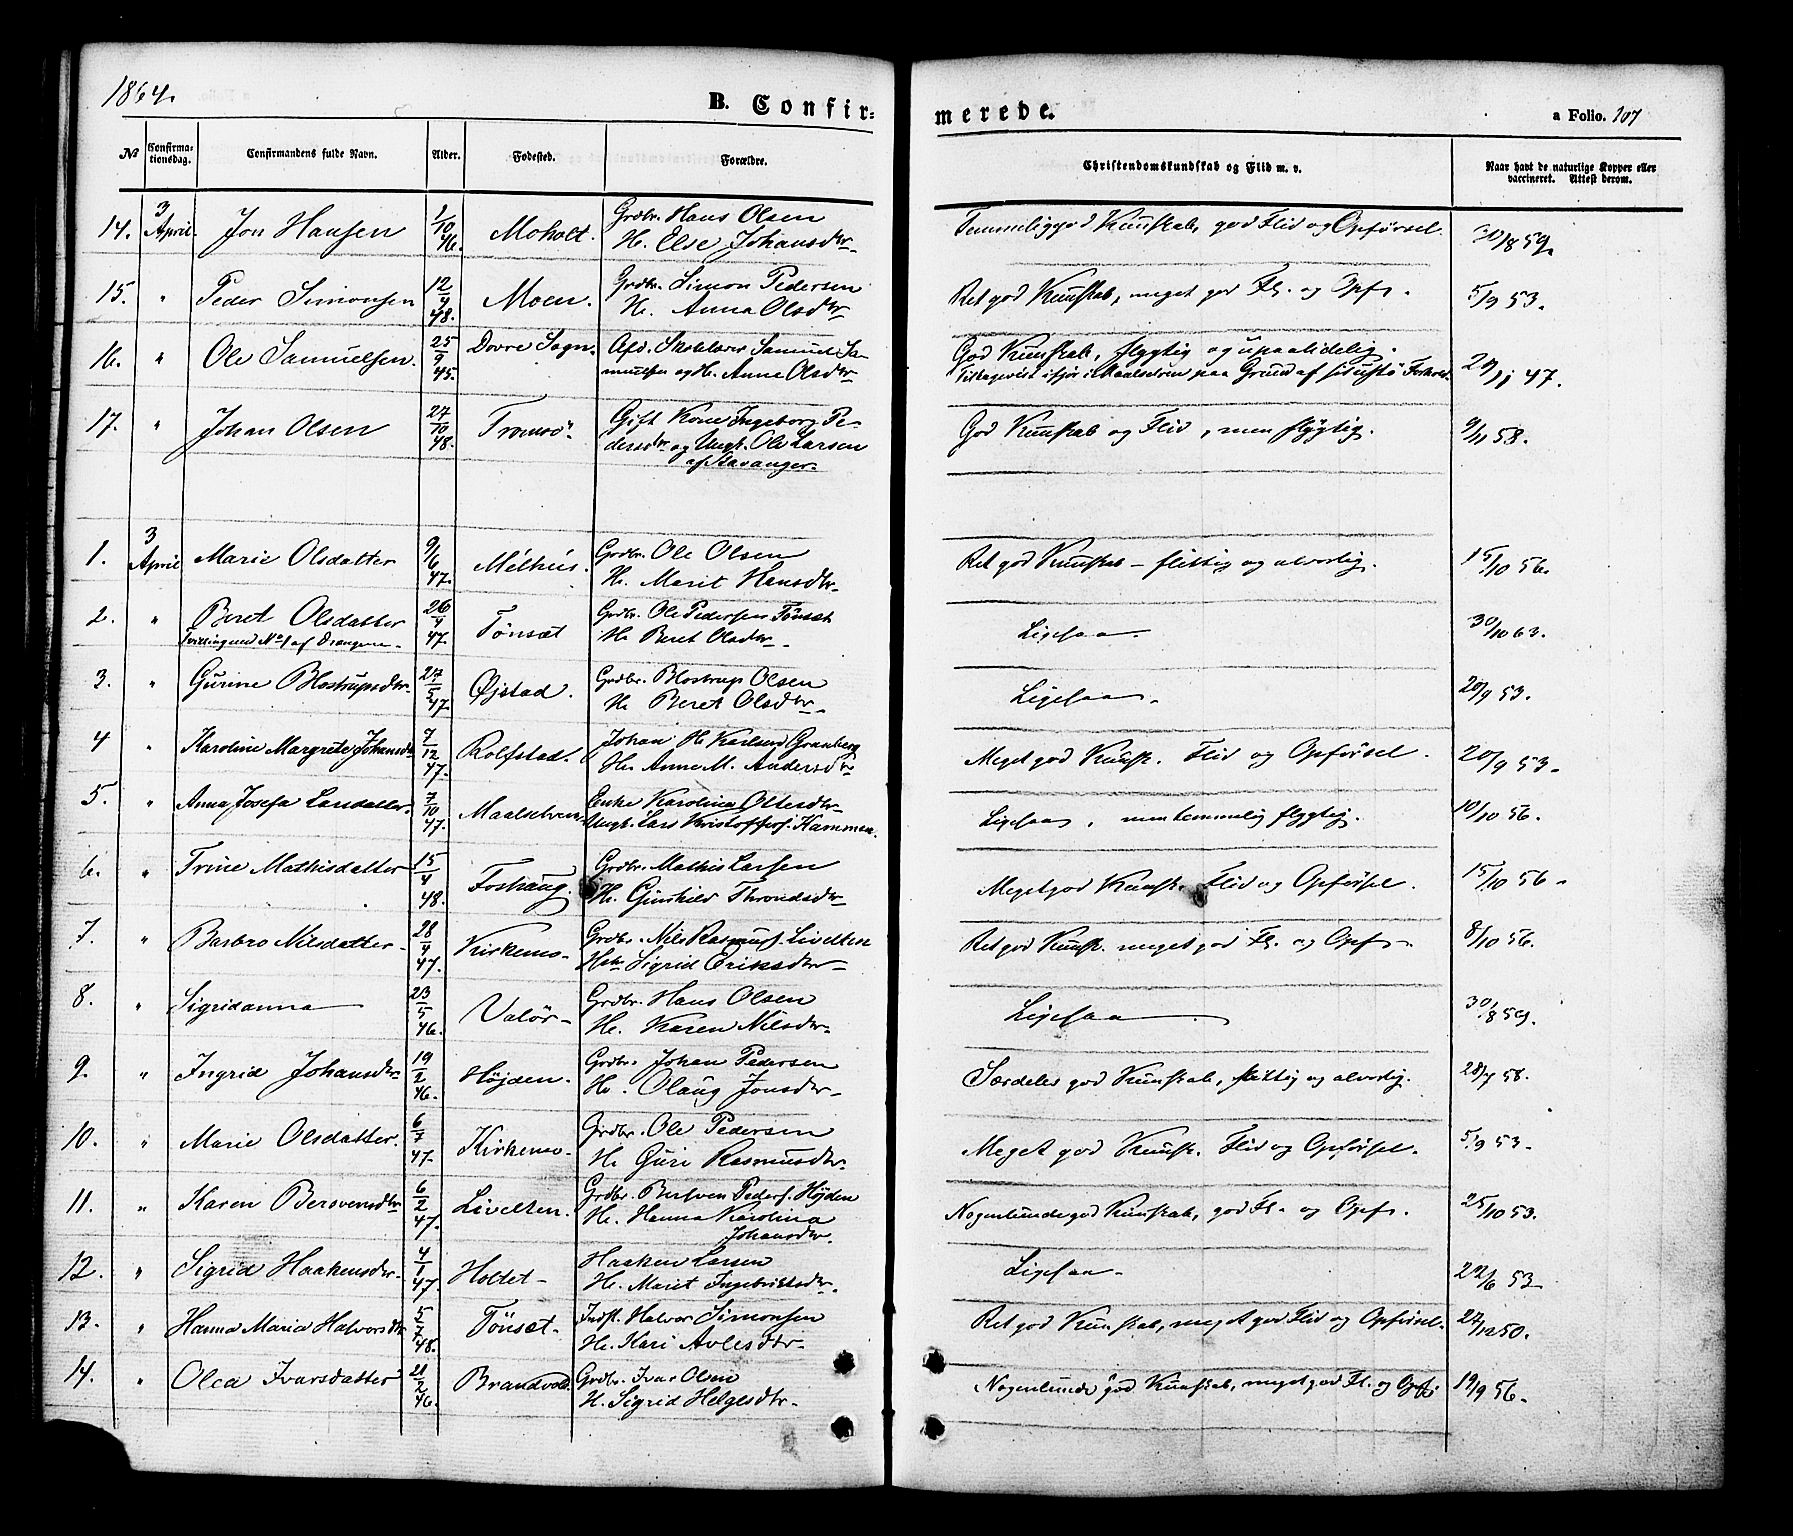 1864.
B. Confir= merede.
a Folio. 107
No Confirma-tionsdag. Confirmandens fulde Navn. Alder. Fødested. Forældre. Christendomskundskab og Flid m. v. Naar havt de naturlige Kopper eller vaccineret. Attest derom.
14. 3 April. Jon Hansen 1/10 46. Moholt. Grdbr. Hans Olsen H. Else Johansdtr Temmelig god Kunskab, god Flid og Opførsel. 30/8 59.
15. " Peder Simonsen 12/4 48. Moen. Grdbr. Simon Pedersen H. Anna Olsdtr Ret god Kunskab, meget god Fl. og Opfs. 5/9 53.
16. " Ole Samuelsen. 25/9 45. Dovre Sogn. Afd. Skolelærer Samuel Sa-muelsen og H. Anne Olsdtr God Kunskab, flygtig og upaalidelig.
Tilbagevist ifjor i Maalselven paa Grund af
47.
17. " Johan Olsen 27/10 48. Tromsö. Gift Kone Ingeborg Pe-dersdtr og Ungk. Ole Larsen af Stavanger. God Kunskab og Flid, men flygtig. 9/11 58.
1. 3 April Marie Olsdatter 9/6 47. Melhus. Grdbr. Ole Olsen H. Marit Hansdtr. Ret god Kunskab - flittig og alvorlig. 15/10 56.
2. " Beret Olsdatter 26/4 47. Tönsæt Grdbr. Ole Pedersen Tönset H. Beret Olsdtr. Ligesaa. 30/10 63.
Tvilling med No 1 af Drengene.
3. " Gurine Blostrupsdtr. 27/5 47. Øjstad. Grdbr. Blostrup Olsen H. Beret Olsdtr. Ligesaa. 20/9 53.
4 " Karoline Margrete Johansdtr 7/12 47. Rolfstad. Johan H Karlsen Granberg H. Anne M. Andersdtr Meget god Kunsk. Flid og Opførsel. 20/9 53.
5. " Anna Josefa Larsdatter. 7/10 47. Maalselven Enke Karolina Ottesdtr Ungk. Lars Kristoffers. Kammen. Ligesaa, men temmelig flygtig. 10/10 56.
6. " Trine Mathisdatter 15/4 48. Foshaug. Grdbr. Mathis Larsen H. Gunhild Throndsdtr Meget god Kunsk. Flid og Opførsel. 15/10 56.
7. " Barbro Nilsdatter 28/4 47. Kirkemo. Grdbr. Nils Rasmus. Livelten Hstr Sigrid Eriksdtr Ret god Kunsk. meget god Fl. og Opfs. 8/10 56.
8. " Sigridanna 23/5 46. Valör. Grdbr. Hans Olsen H. Karen Nilsdtr. Ligesaa. 30/8 59.
9. " Ingrid Johansdtr 19/2 46. Højden. Grdbr. Johan Pedersen H. Olaug Jonsdtr. Særdeles god Kunskab, flittig og alvorlig. 28/7 58.
10. " Marie Olsdatter. 6/7 47. Kirkemo. Grdbr. Ole Pedersen H. Guri Rasmusdtr. Meget god Kunsk. Flid og Opførsel. 5/9 53.
11. " Karen Bersvendsdtr 6/2 47. Livelten. Grdbr. Bersven Peders. Højden H. Hanna Karolina Johansdtr. Nogenlunde god Kunskab, god Fl. og Opfs. 25/10 53.
12. " Sigrid Haakensdtr. 4/1 47. Holtet. Haaken Larsen H. Marit Ingebrittsdtr. Ligesaa. 22/6 53
13. " Hanna Maria Halvorsdtr 5/7 48. Tönset. Indst. Halvor Simonsen H. Kari Avlesdtr. Ret god Kunskab, meget god Flid og Opførsel. 27/12 50.
14. " Olea Ivarsdatter 21/2 46. Brandvold. Grdbr. Ivar Olsen H. Sigrid Helgesdtr. Nogenlunde god Kunskab, meget god Fl. og Opfs. 19/9 56.